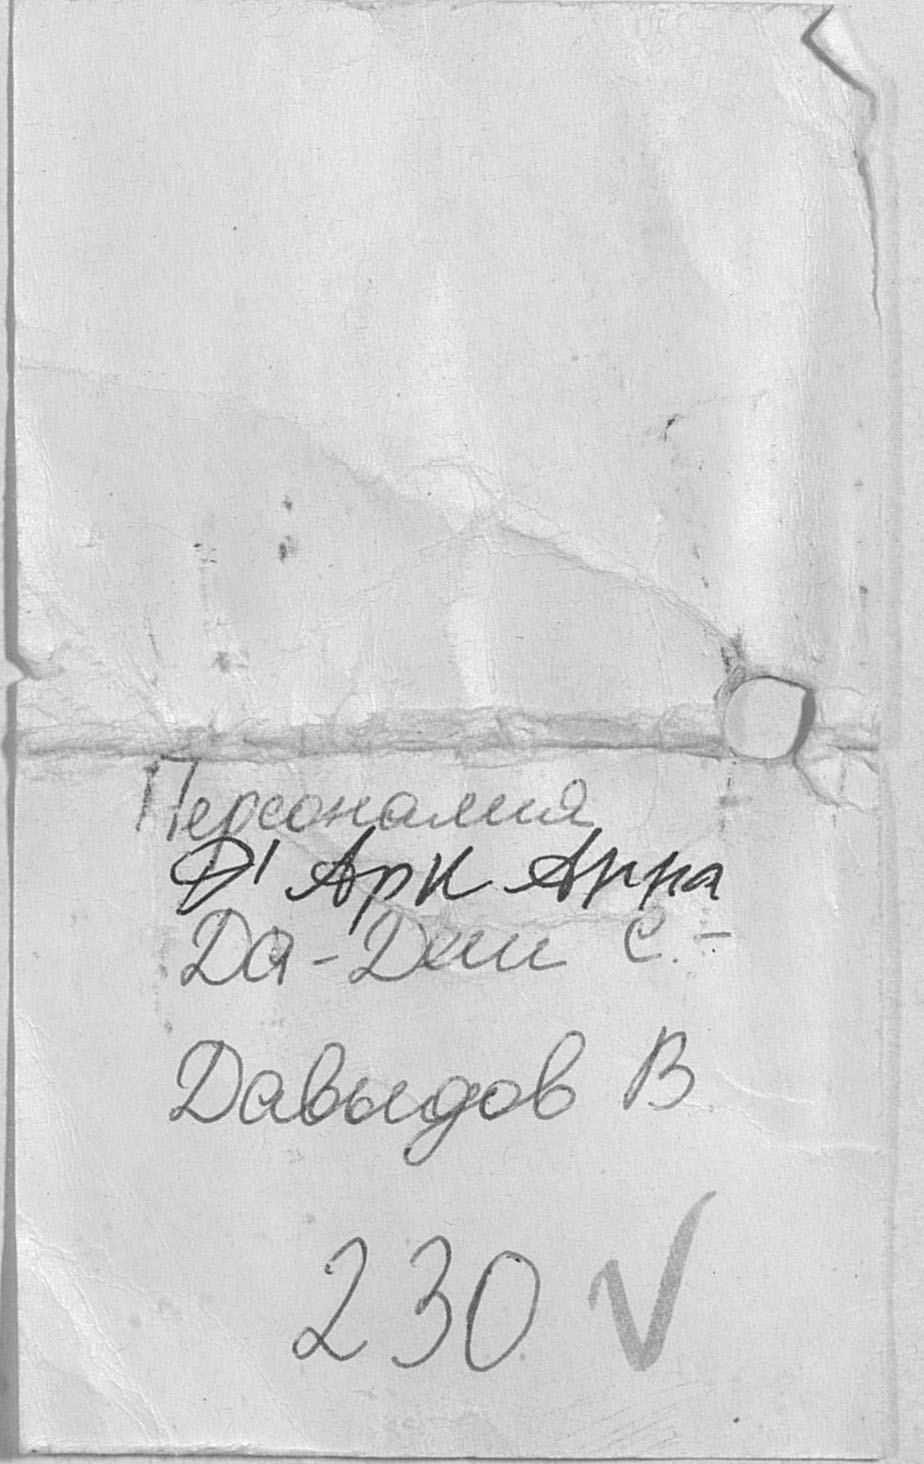 Персоналия
Д' Арк Анна
Да-Дии С. -
Давыдов В
230 √